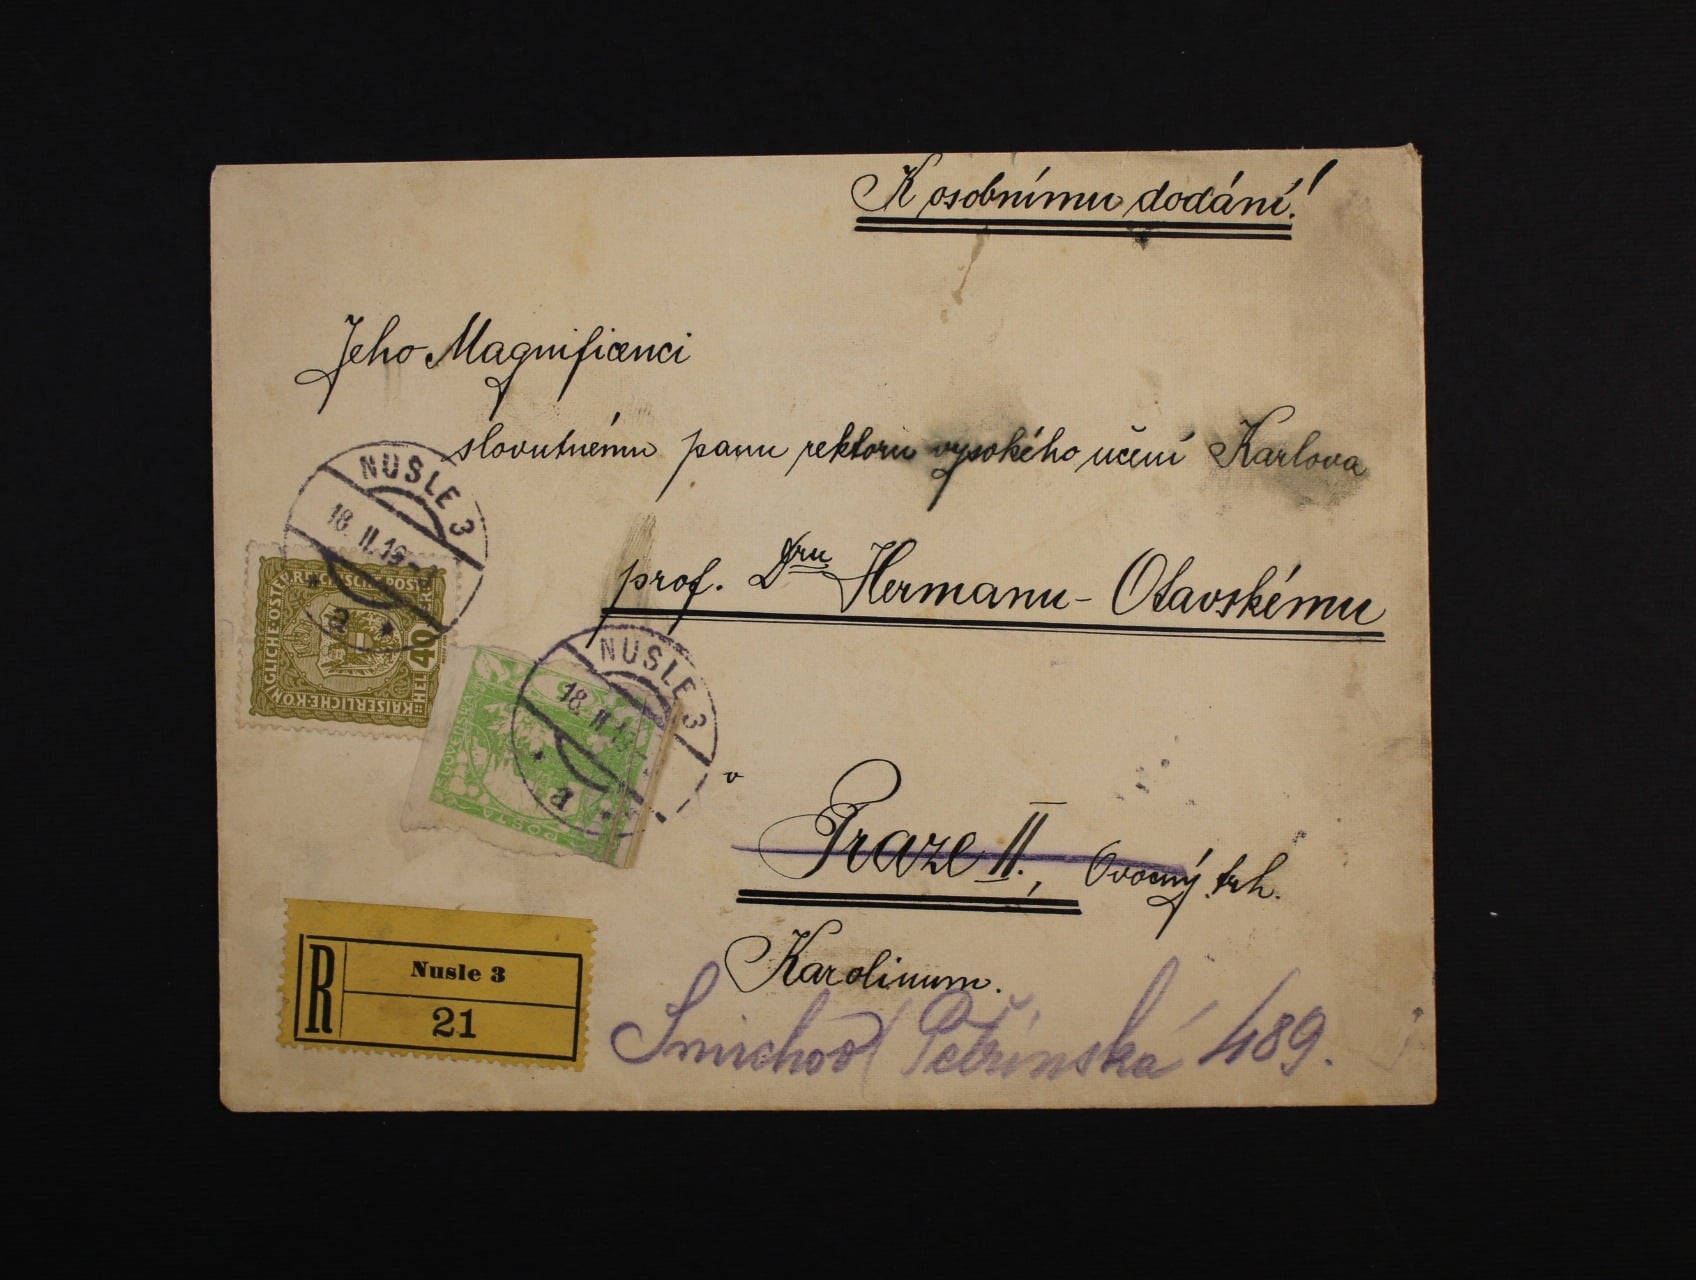 K osobnímu dodání!
Jeho Magnificenci
slovutnému panu rektoru vysokého učení Karlova
prof. Dru Heřmanu - Otavskému
v
Praze II., Ovocný trh.
Karolinum.
Smíchov Petřínská 489.
NUSLE 3
18. II. 19
a
KAISERLICHE·KÖNIGLICHE·OSTERREICHISCHE·POST
HELLER
40
NUSLE 3
18. II. 19
a
POŠTA
R
Nusle 3
21